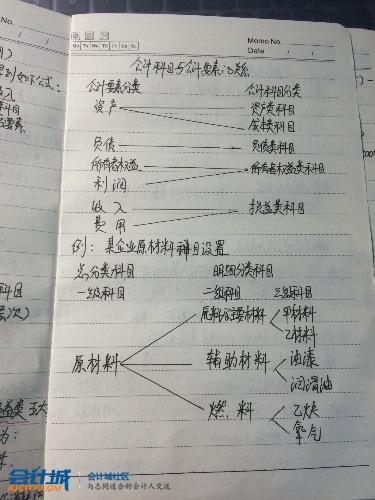 Memo No.
Mo Tu We Th Fr Sa Su
Date / /
会计科目与会计要素的关系
会计要素分类 会计科目分类
资产 资产类科目
成本类科目
负债 负债类科目
所有者权益 所有者权益类科目
利润
收入 损益类科目
费用
例：某企业原材料科目设置
总分类科目 明细分类科目
一级科目 二级科目 三级科目
原料及主要材料 甲材料
乙材料
原材料 辅助材料 油漆
润滑油
燃料 乙炔
氧气
会计城
会计城社区
与志同道合的会计人交流